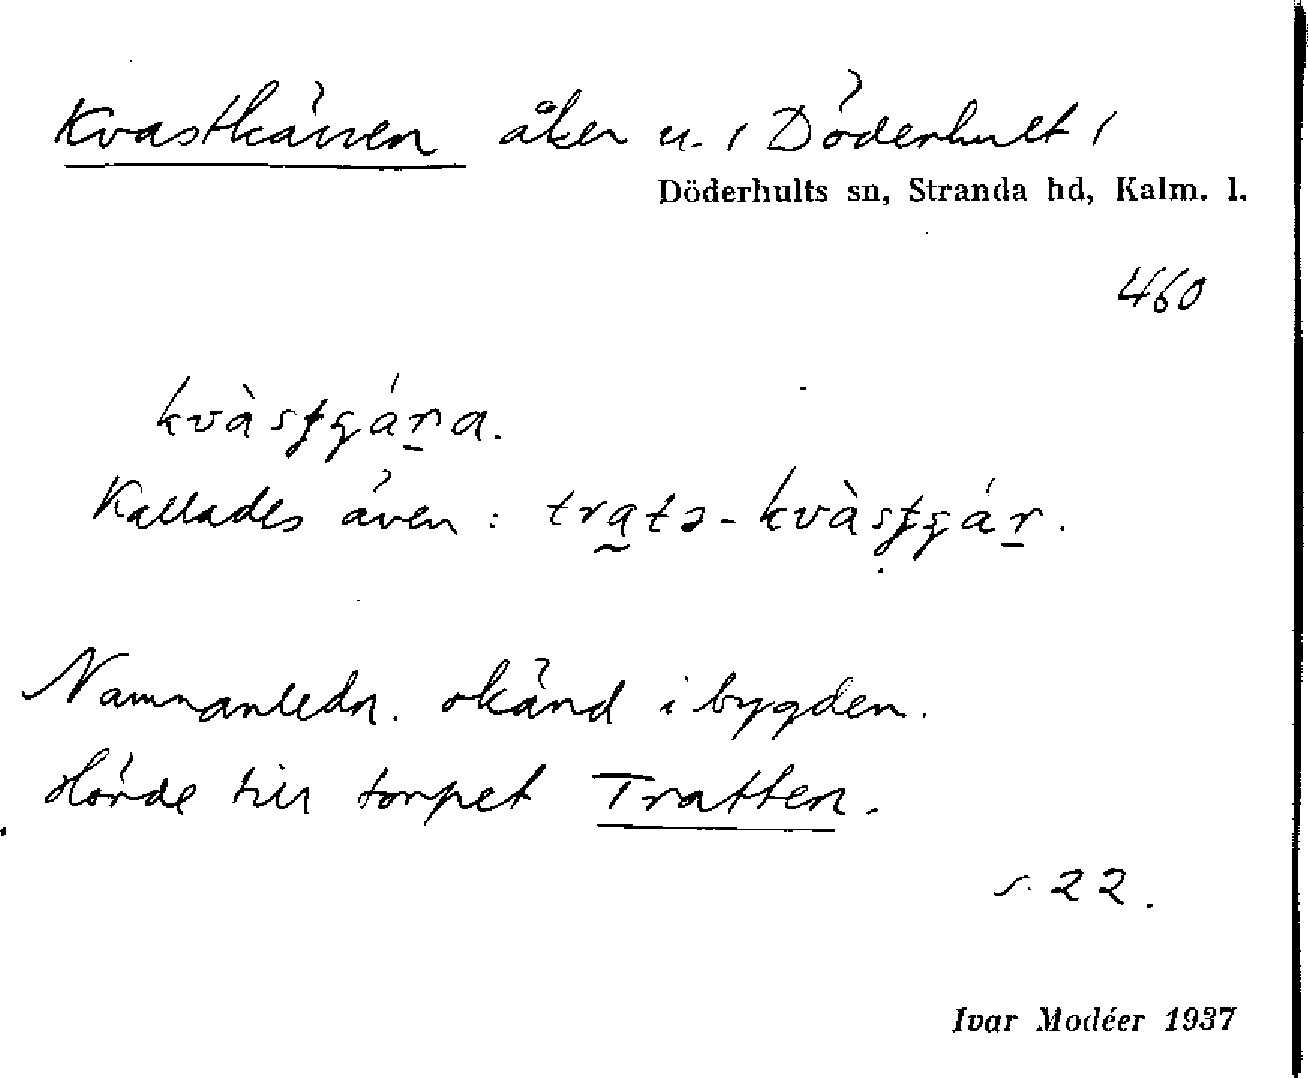 Kvastkärren åker u. / Döderhult /
Döderhults sn, Stranda hd, Kalm. l.
460
Kallades även :
Namnanledn. okänd i bygden.
Hörde till torpet Tratten.
s. 22.
Ivar Modéer 1937